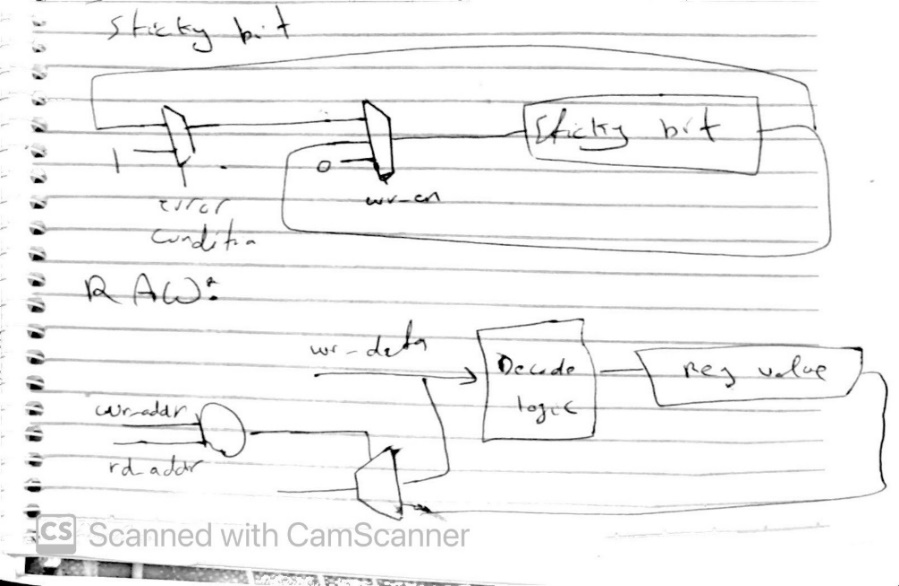 Sticky bit
Sticky bit
1
0
error
condition
wr-en
RAW:
wr-data
Decode
logic
Reg value
wr-addr
rd-addr
CS Scanned with CamScanner